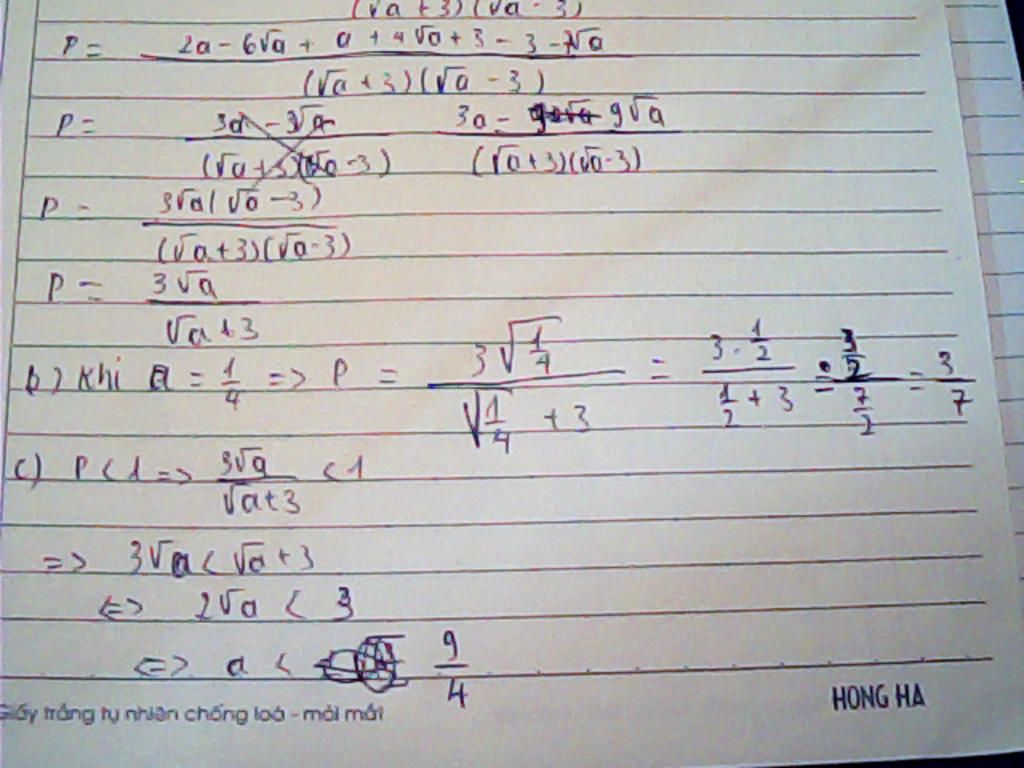 (√a + 3)(√a - 3)
P = (2a - 6√a + a + 4√a + 3 - 3 - 7√a) / ((√a + 3)(√a - 3))
P = (3a - 3√a) / ((√a + 3)(√a - 3)) (3a - 9√a) / ((√a + 3)(√a - 3))
P = 3√a(√a - 3) / ((√a + 3)(√a - 3))
P = 3√a / (√a + 3)
b) Khi a = 1/4 => P = 3√(1/4) / (√(1/4) + 3) = (3 · 1/2) / (1/2 + 3) = (3/2) / (7/2) = 3/7
c) P < 1 => 3√a / (√a + 3) < 1
=> 3√a < √a + 3
<=> 2√a < 3
<=> a < 9/4
Giấy trắng tự nhiên chống loá - mỏi mắt
HONG HA